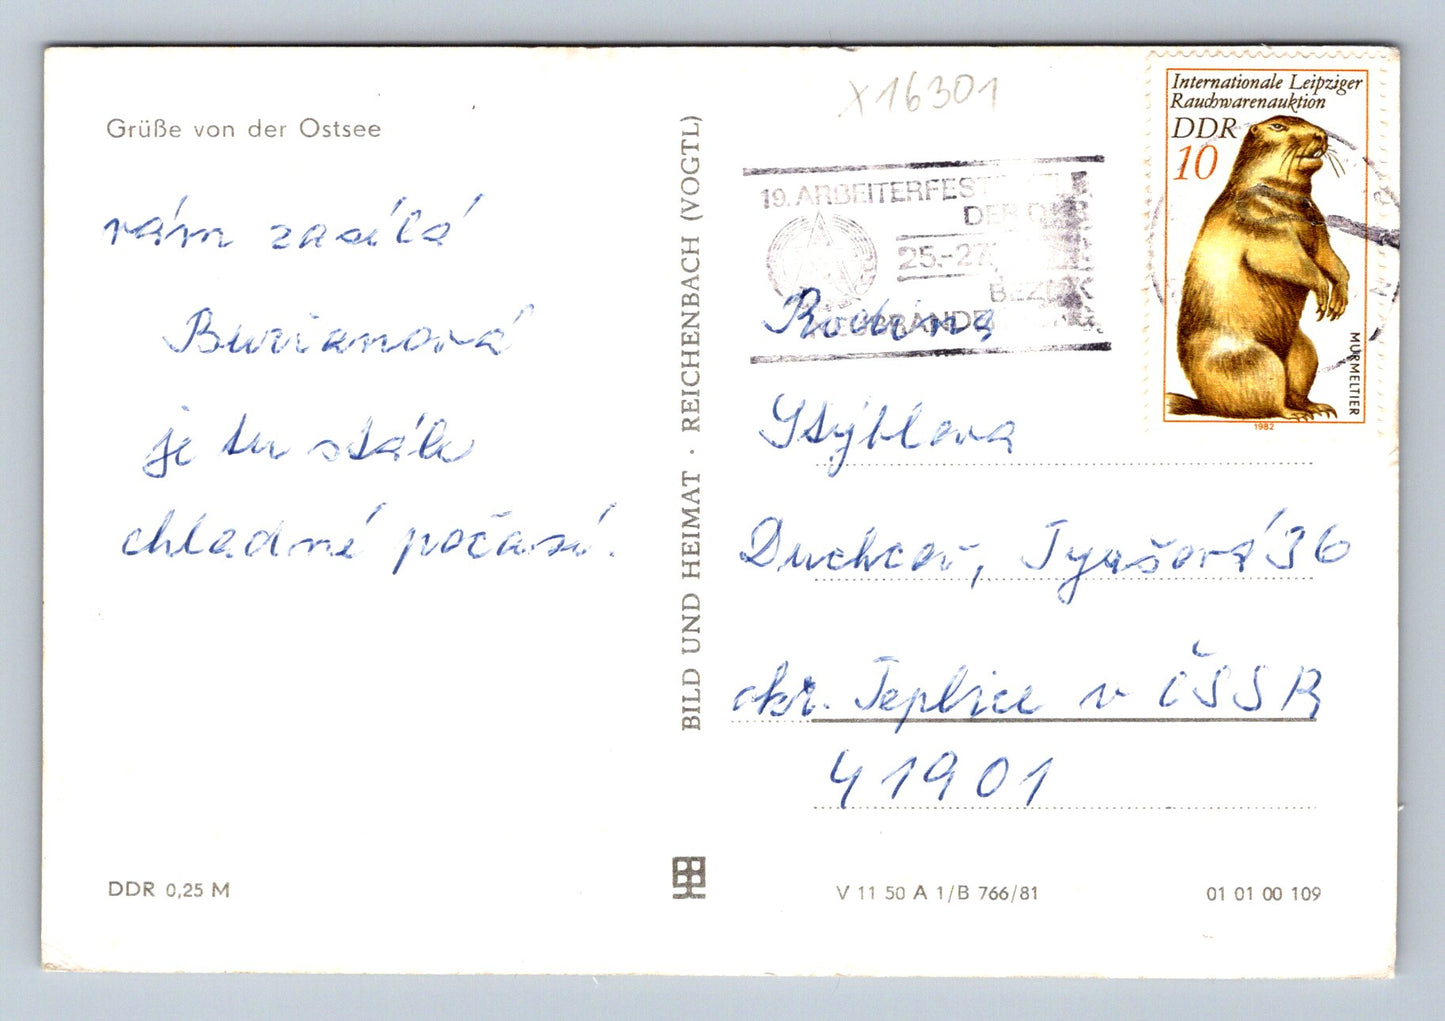 Grüße von der Ostsee
vám zasílá
Burianová
je tu stále
chladné počasí.
DDR 0,25 M
BILD UND HEIMAT · REICHENBACH (VOGTL)
X16301
19. ARBEITERFEST
DER DDR
25.-27.
BEZIRK
NEUBRANDENBURG
Internationale Leipziger
Rauchwarenauktion
DDR
10
MURMELTIER
1982
Rodina
Stýblova
Duchcov, Tyršova 36
okr. Teplice v ČSSR
41901
V 11 50 A 1/B 766/81
01 01 00 109